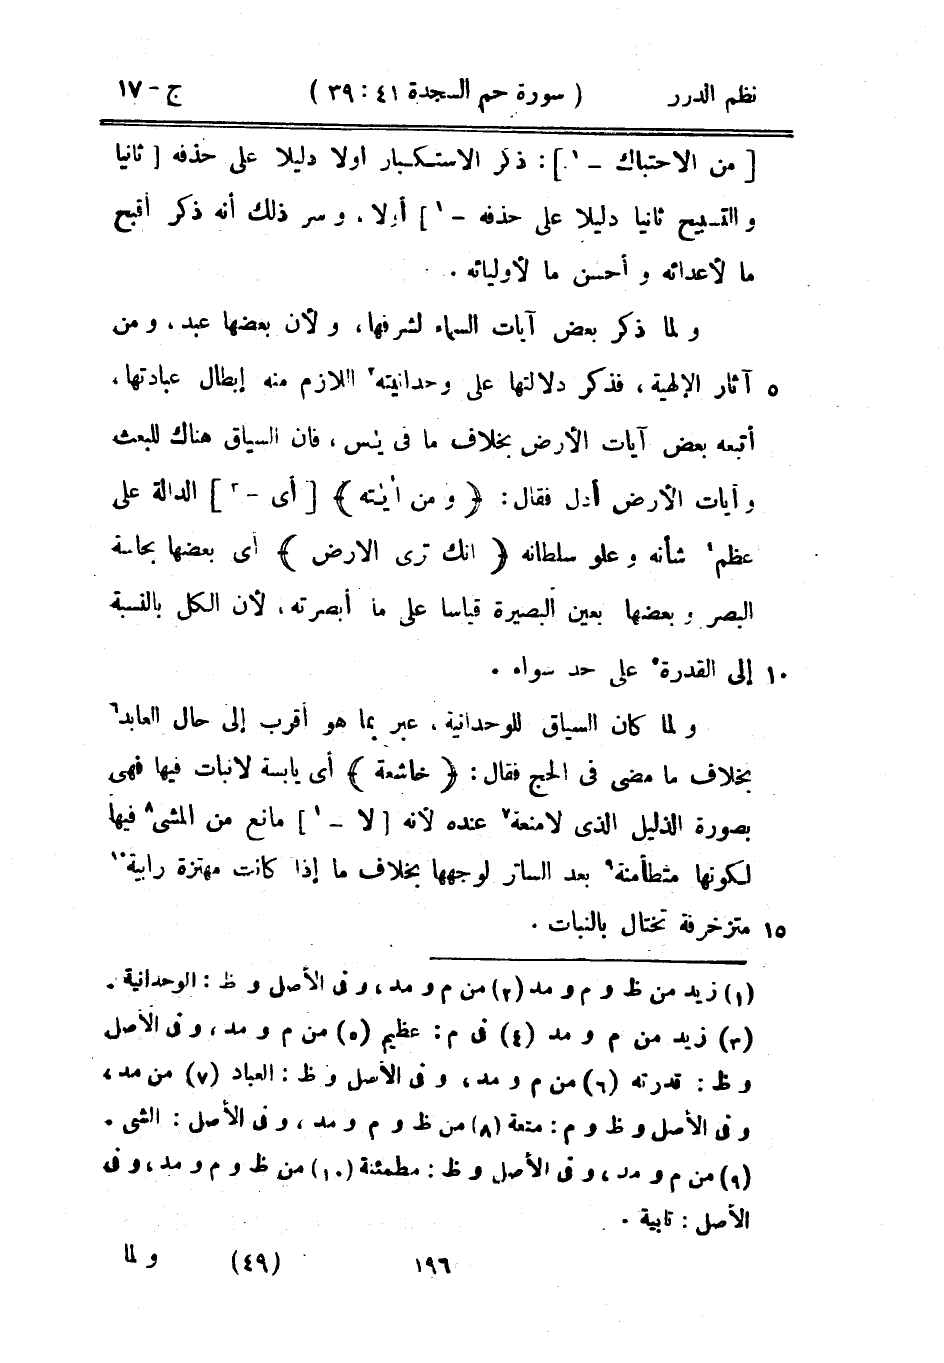 نظم الدرر ( سورة حم السجدة ٤١ : ٣٩ ) ج - ١٧
[ من الاحتباك - ١ ] : ذكر الاستكبار اولا دليلا على حذفه [ ثانيا
و التقبيح ثانيا دليلا على حذفه - ١ ] أولا ، و سر ذلك أنه ذكر أقبح
ما لأعدائه و أحسن ما لأوليائه .
و لما ذكر بعض آيات السماء لشرفها ، و لأن بعضها عبد ، و من
٥ آثار الإلهية ، فذكر دلالتها على وحدانيته ٢ اللازم منه إبطال عبادتها ،
أتبعه بعض آيات الأرض بخلاف ما فى يٰس ، فان السياق هناك للبعث
و آيات الأرض أدل فقال : ﴿ و من اٰيٰته ﴾ [ أى - ٣ ] الدالة على
عظم ٤ شأنه و علو سلطانه ﴿ انك ترى الارض ﴾ أى بعضها بحاسة
البصر و بعضها بعين البصيرة قياسا على ما أبصرته ، لأن الكل بالنسبة
١٠ إلى القدرة ٥ على حد سواء .
و لما كان السياق للوحدانية ، عبر بما هو أقرب إلى حال العابد ٦
بخلاف ما مضى فى الحج فقال : ﴿ خاشعة ﴾ أى يابسة لانبات فيها فهى
بصورة الذليل الذى لامنعة ٧ عنده لأنه [ لا - ١ ] مانع من المشى ٨ فيها
لكونها متطأمنة ٩ بعد الساتر لوجهها بخلاف ما إذا كانت مهتزة رابية ١٠
١٥ متزخرفة تختال بالنبات .
(١) زيد من ظ و م و مد (٢) من م و مد ، و فى الأصل و ظ : الوحدانية .
(٣) زيد من م و مد (٤) فى م : عظيم (٥) من م و مد ، و فى الأصل
و ظ : قدرته (٦) من م و مد ، و فى الأصل و ظ : العباد (٧) من مد ،
و فى الأصل و ظ و م : منعة (٨) من ظ و م و مد ، و فى الأصل : الشى .
(٩) من م و مد ، و فى الأصل و ظ : مطمئنة (١٠) من ظ و م و مد ، و فى
الأصل : تابية .
١٩٦ (٤٩) و لما